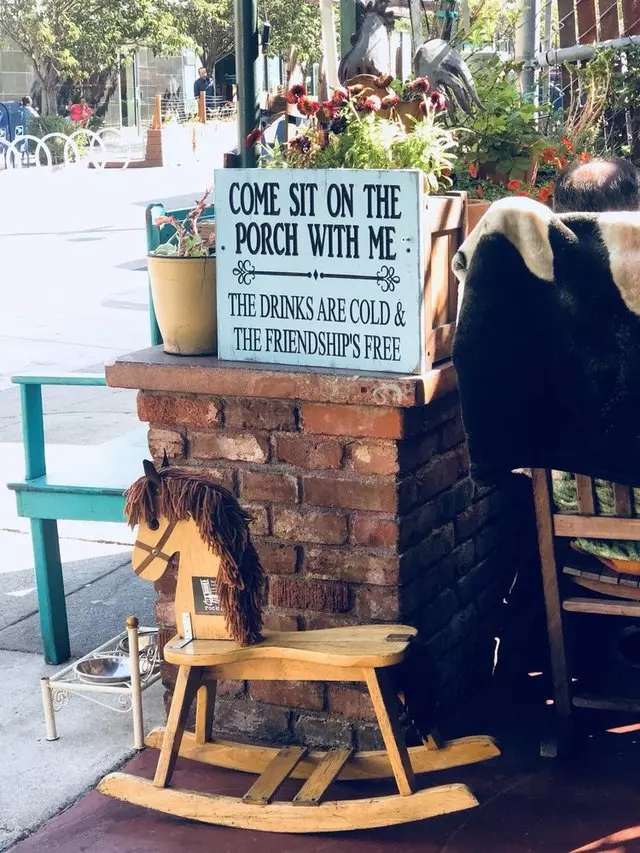 COME SIT ON THE
PORCH WITH ME
THE DRINKS ARE COLD &
THE FRIENDSHIP'S FREE